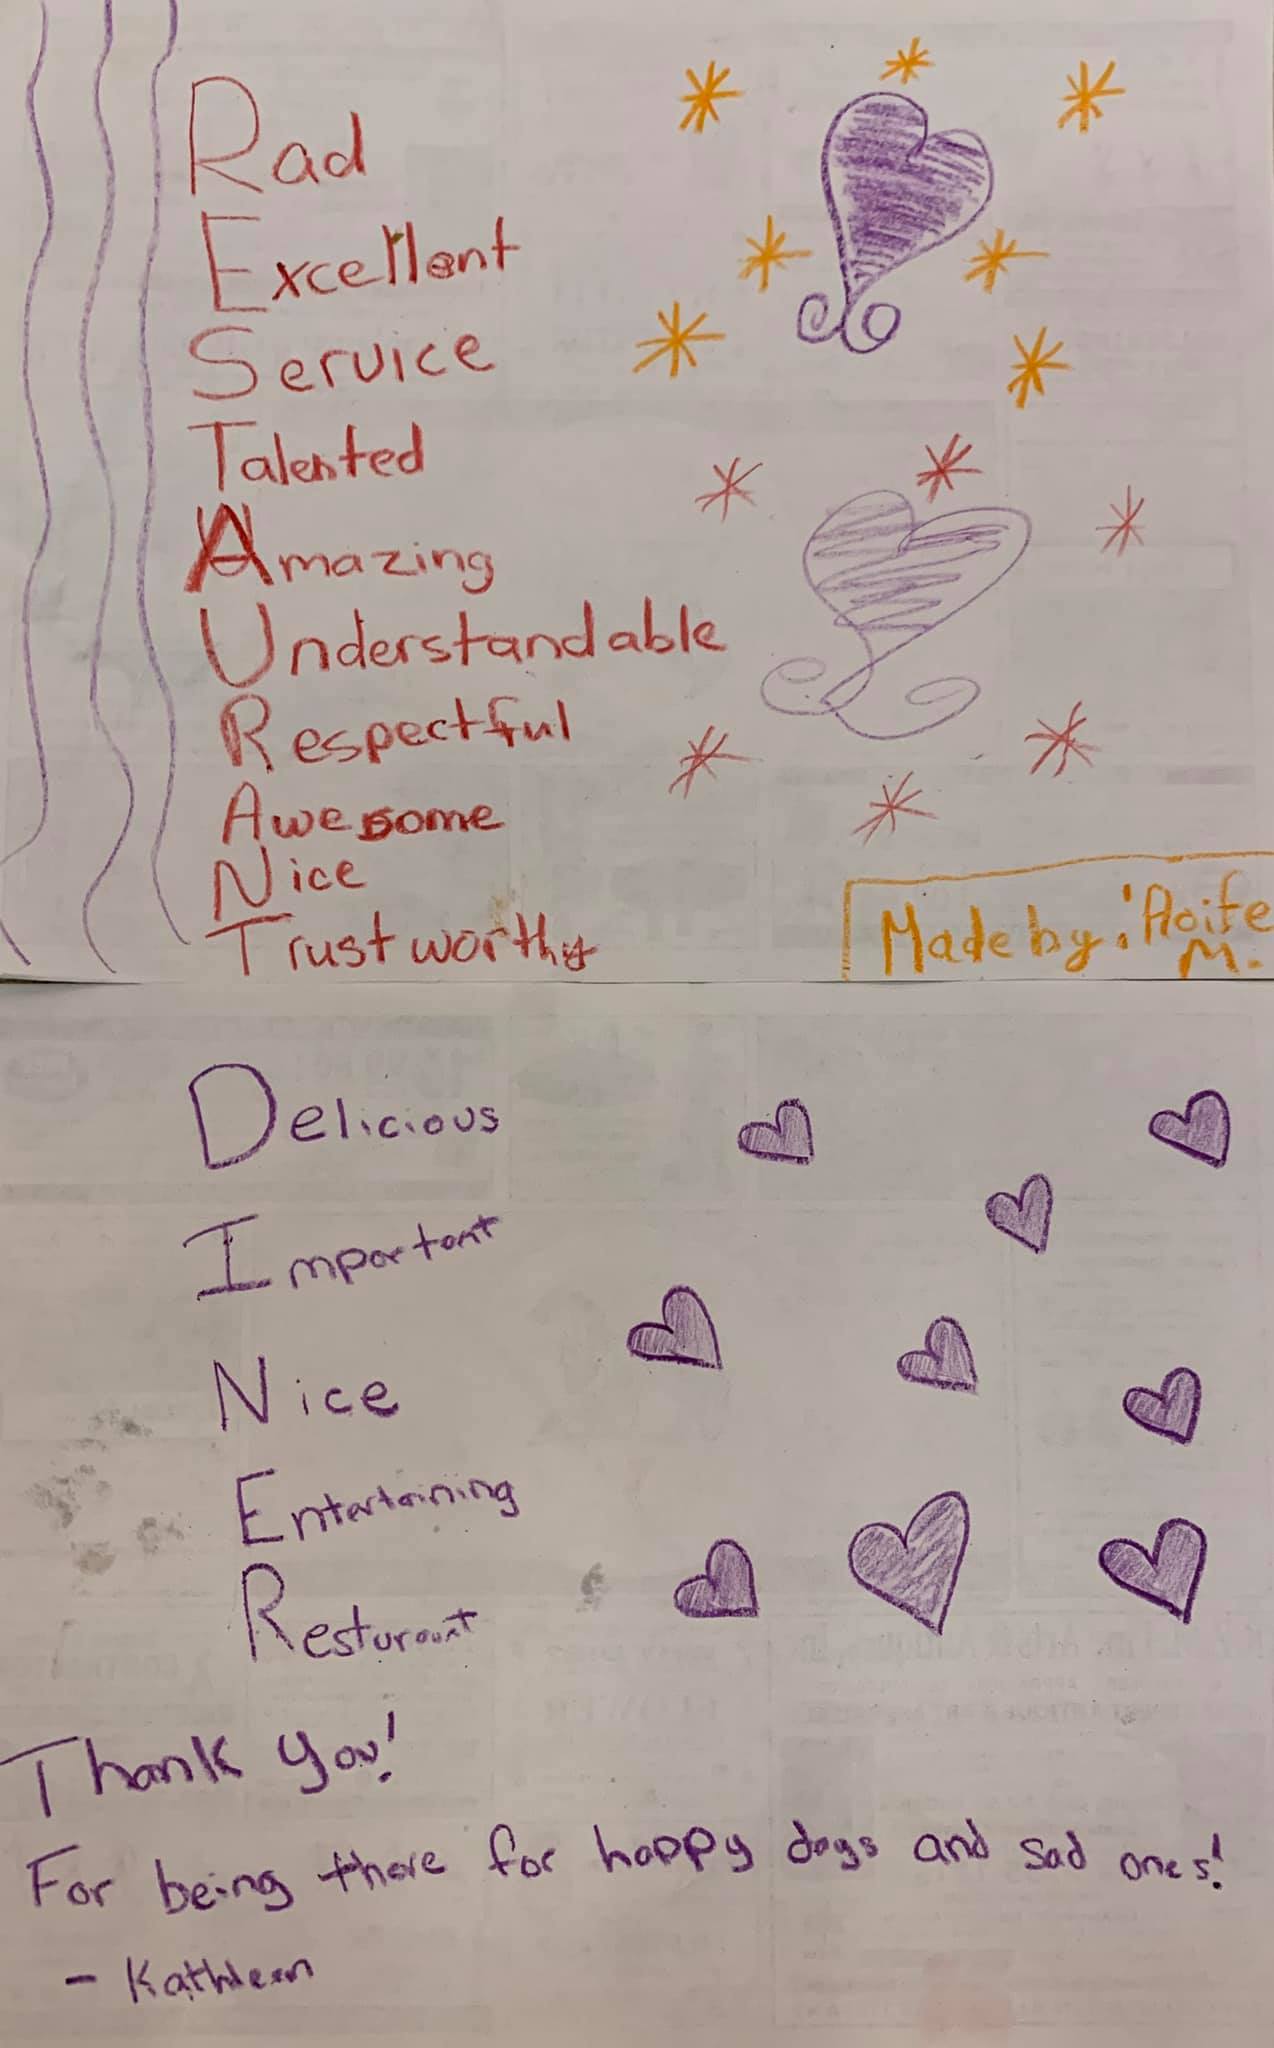 Rad
Excellent
Service
Talented
Amazing
Understandable
Respectful
Awesome
Nice
Trustworthy
Made by: Aoife
M.
Delicious
Important
Nice
Entertaining
Resturaunt
Thank you!
For being there for happy days and sad ones!
- Kathleen